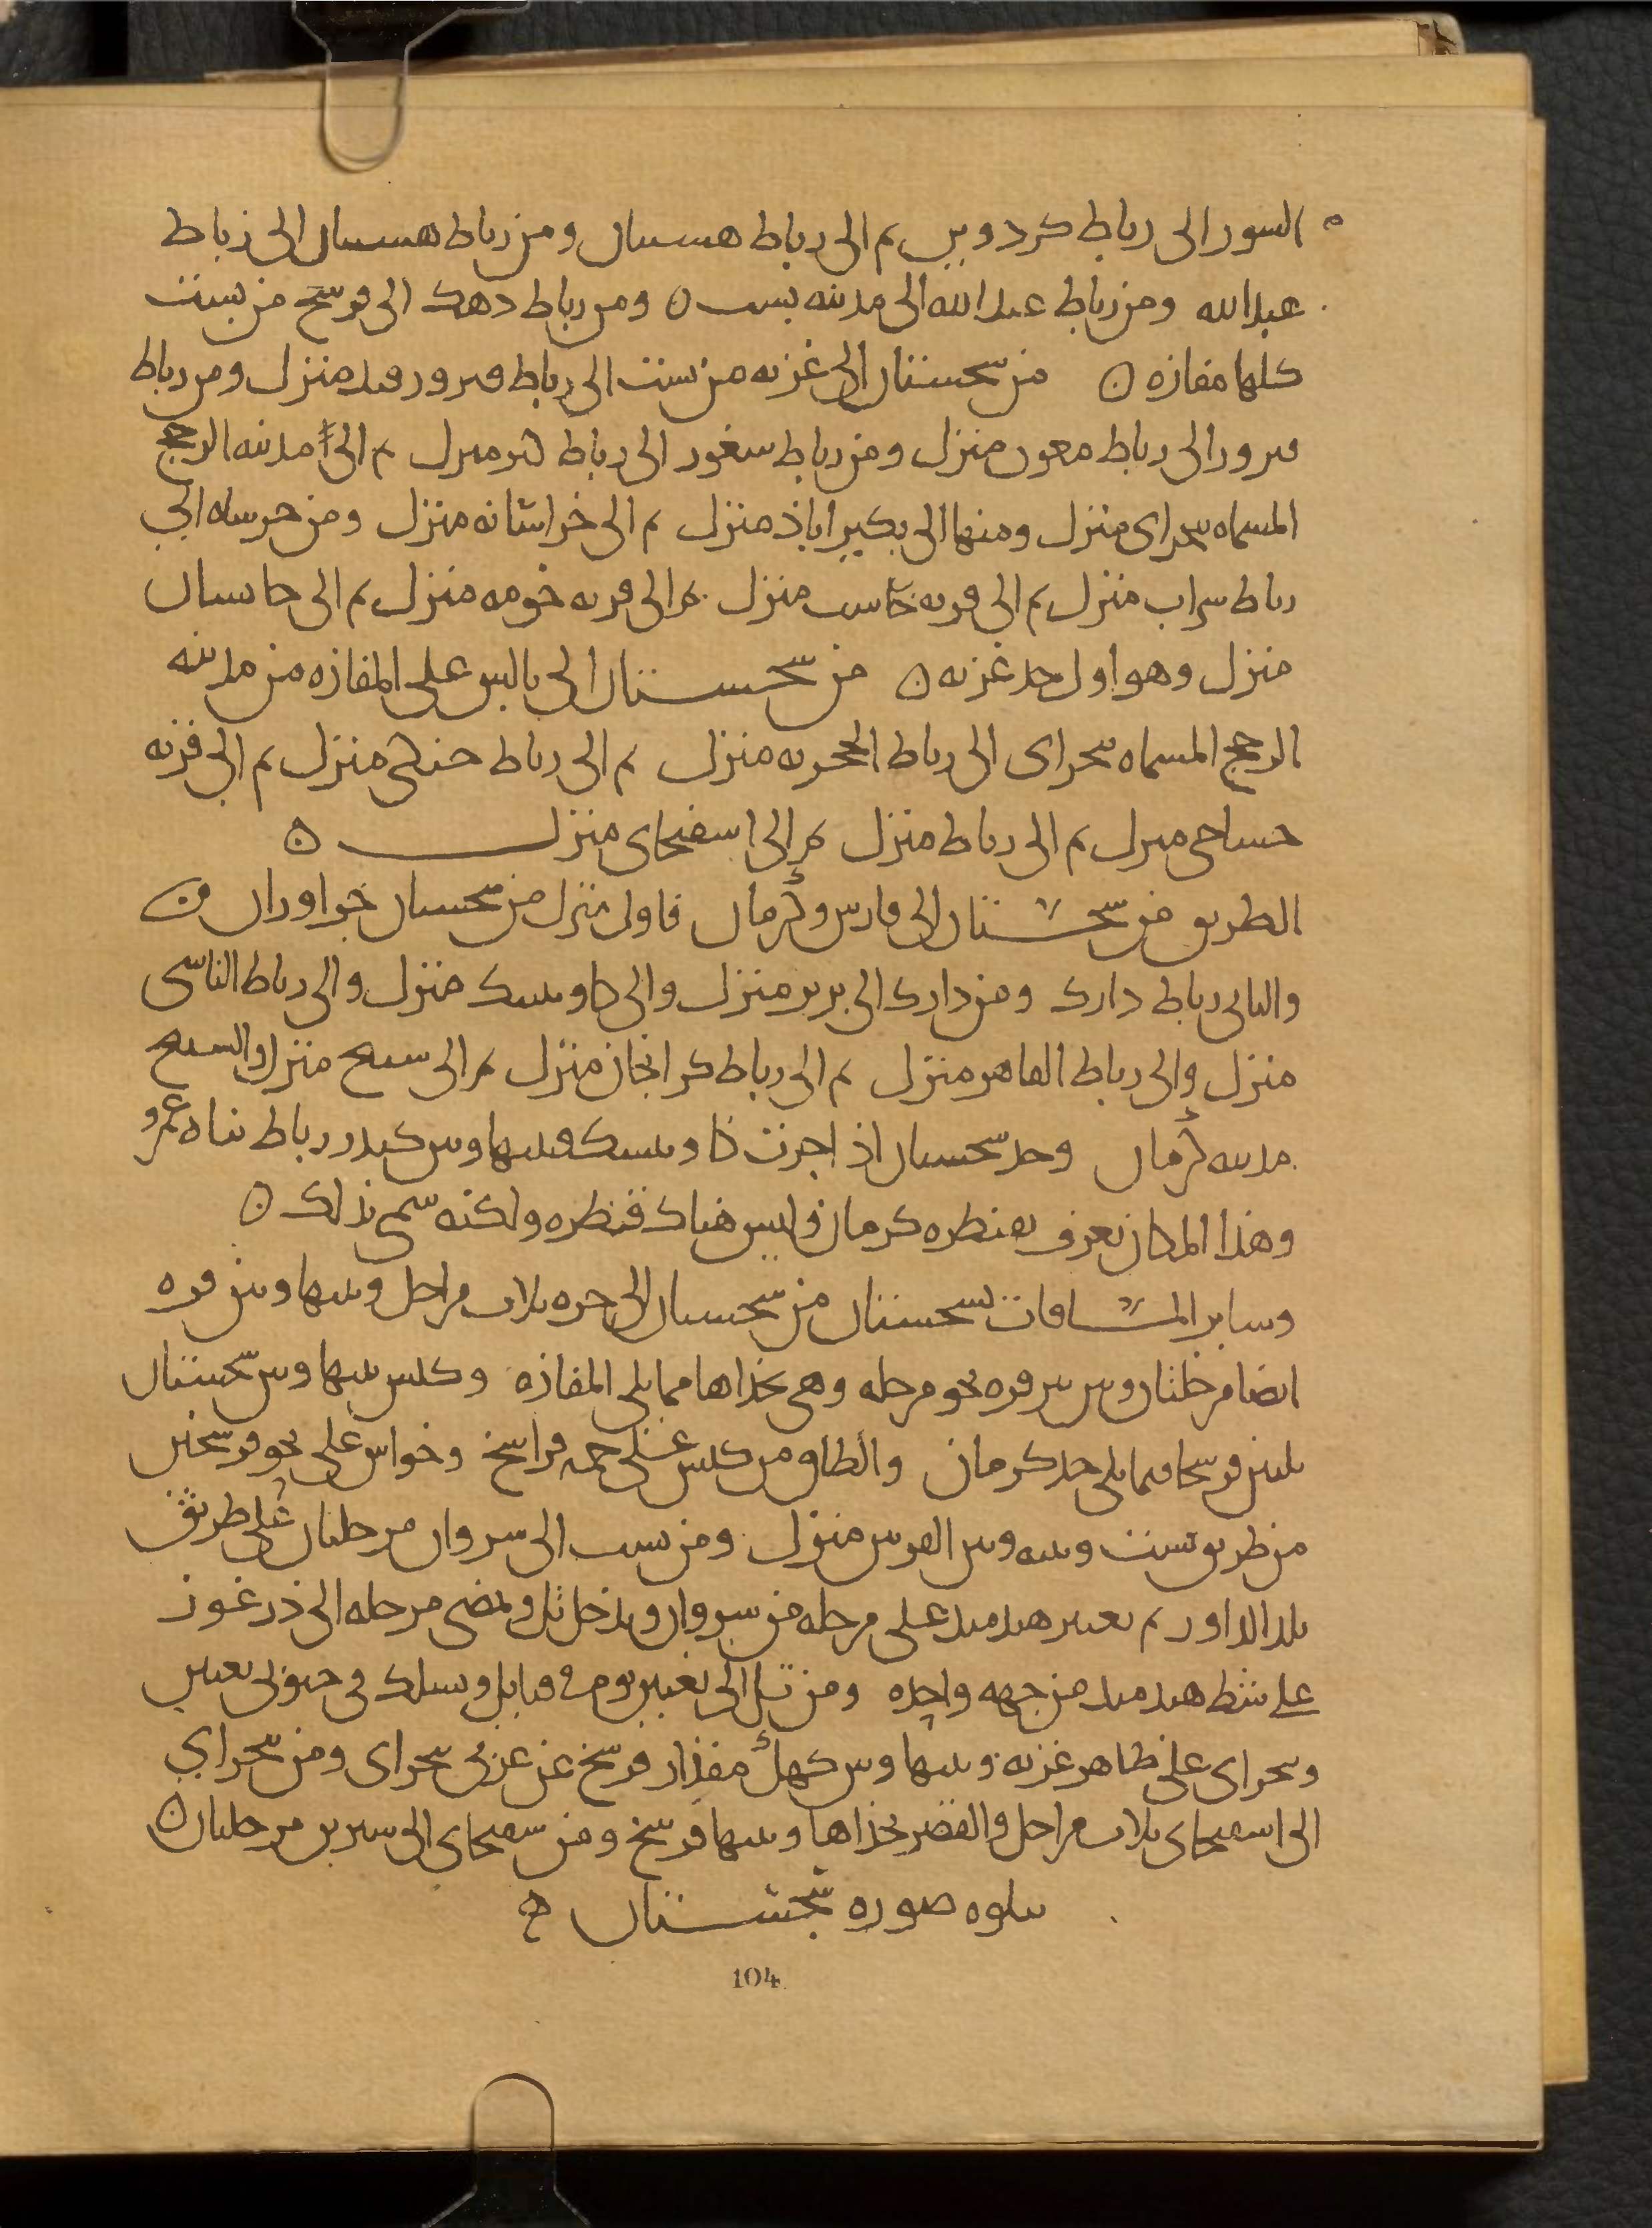 السور الى رباط كردوين ثم الى رباط هسسان ومن رباط هسسان الى رباط
عبدالله ومن رباط عبدالله الى مدينه بست ه ومن رباط دهك الى فرسخ من بست
كلها مفازه ه من سجستان الى غزنه من بست الى رباط فيروزقند منزل ومن رباط
فيروز الى رباط معون منزل ومن رباط سغور الى رباط كبر منزل ثم الى مدينه الرخج
المسماه بنجواى منزل ومنها الى بكيراباذ منزل ثم الى خراسانه منزل ومن خرسانه الى
رباط سراب منزل ثم الى قريه خاست منزل ثم الى قريه خومه منزل ثم الى خابسان
منزل وهو اول حد غزنه ه من سجستان الى بالس على المفازه من مدينه
الرخج المسماه بنجواى الى رباط الحجريه منزل ثم الى رباط جنكى منزل ثم الى قريه
حساجى منزل ثم الى رباط منزل ثم الى اسفنجاى منزل ه
الطريق من سجستان الى فارس وكرمان فاول منزل من سجستان خواوران
والثانى رباط دارك ومن دارك الى برير منزل والى كاونيشك منزل والى رباط الناسى
منزل والى رباط القاهر منزل ثم الى رباط كرانخان منزل ثم الى سنيج منزل والسنيج
مدينه كرمان وحد سجستان اذ اجزت كاونيشك وبينها وبين كندر رباط بناه عمرو
وهذا المكان يعرف بقنطره كرمان وليس هناك قنطره ولكنه سمى بذلك ه
وساير المسافات بسجستان من سجستان الى جزه ثلاث مراحل وبينها وبين فره
ايضا مرحلتان وبين فره نحو مرحله وهى بحذاها مما يلى المفازه وكش بينها وبين سجستان
ثلثين فرسخا مما يلى حد كرمان والطاق من كش على خمسه فراسخ وخواش على نحو فرسخين
من طريق بست وبينه وبين القرنين منزل ومن بست الى سروان مرحلتان على طريق
بلد الداور ثم تعبر هندمند على مرحله من سروان وتدخل تل وتمضى مرحله الى درغوز
على شط هندمند من جهه واحده ومن تل الى بغنين يوم فى قبايل وبشلنك فى جنوبى بغنين
وبنجواى على ظاهر غزنه وبينها وبين كهك مقدار فرسخ عن غربى بنجواى ومن بنجواى
الى اسفنجاى ثلاث مراحل والقصر بحذاها وبينها فرسخ ومن سفنجاى الى سيرين مرحلتان ه
يتلوه صوره سجستان ه
104